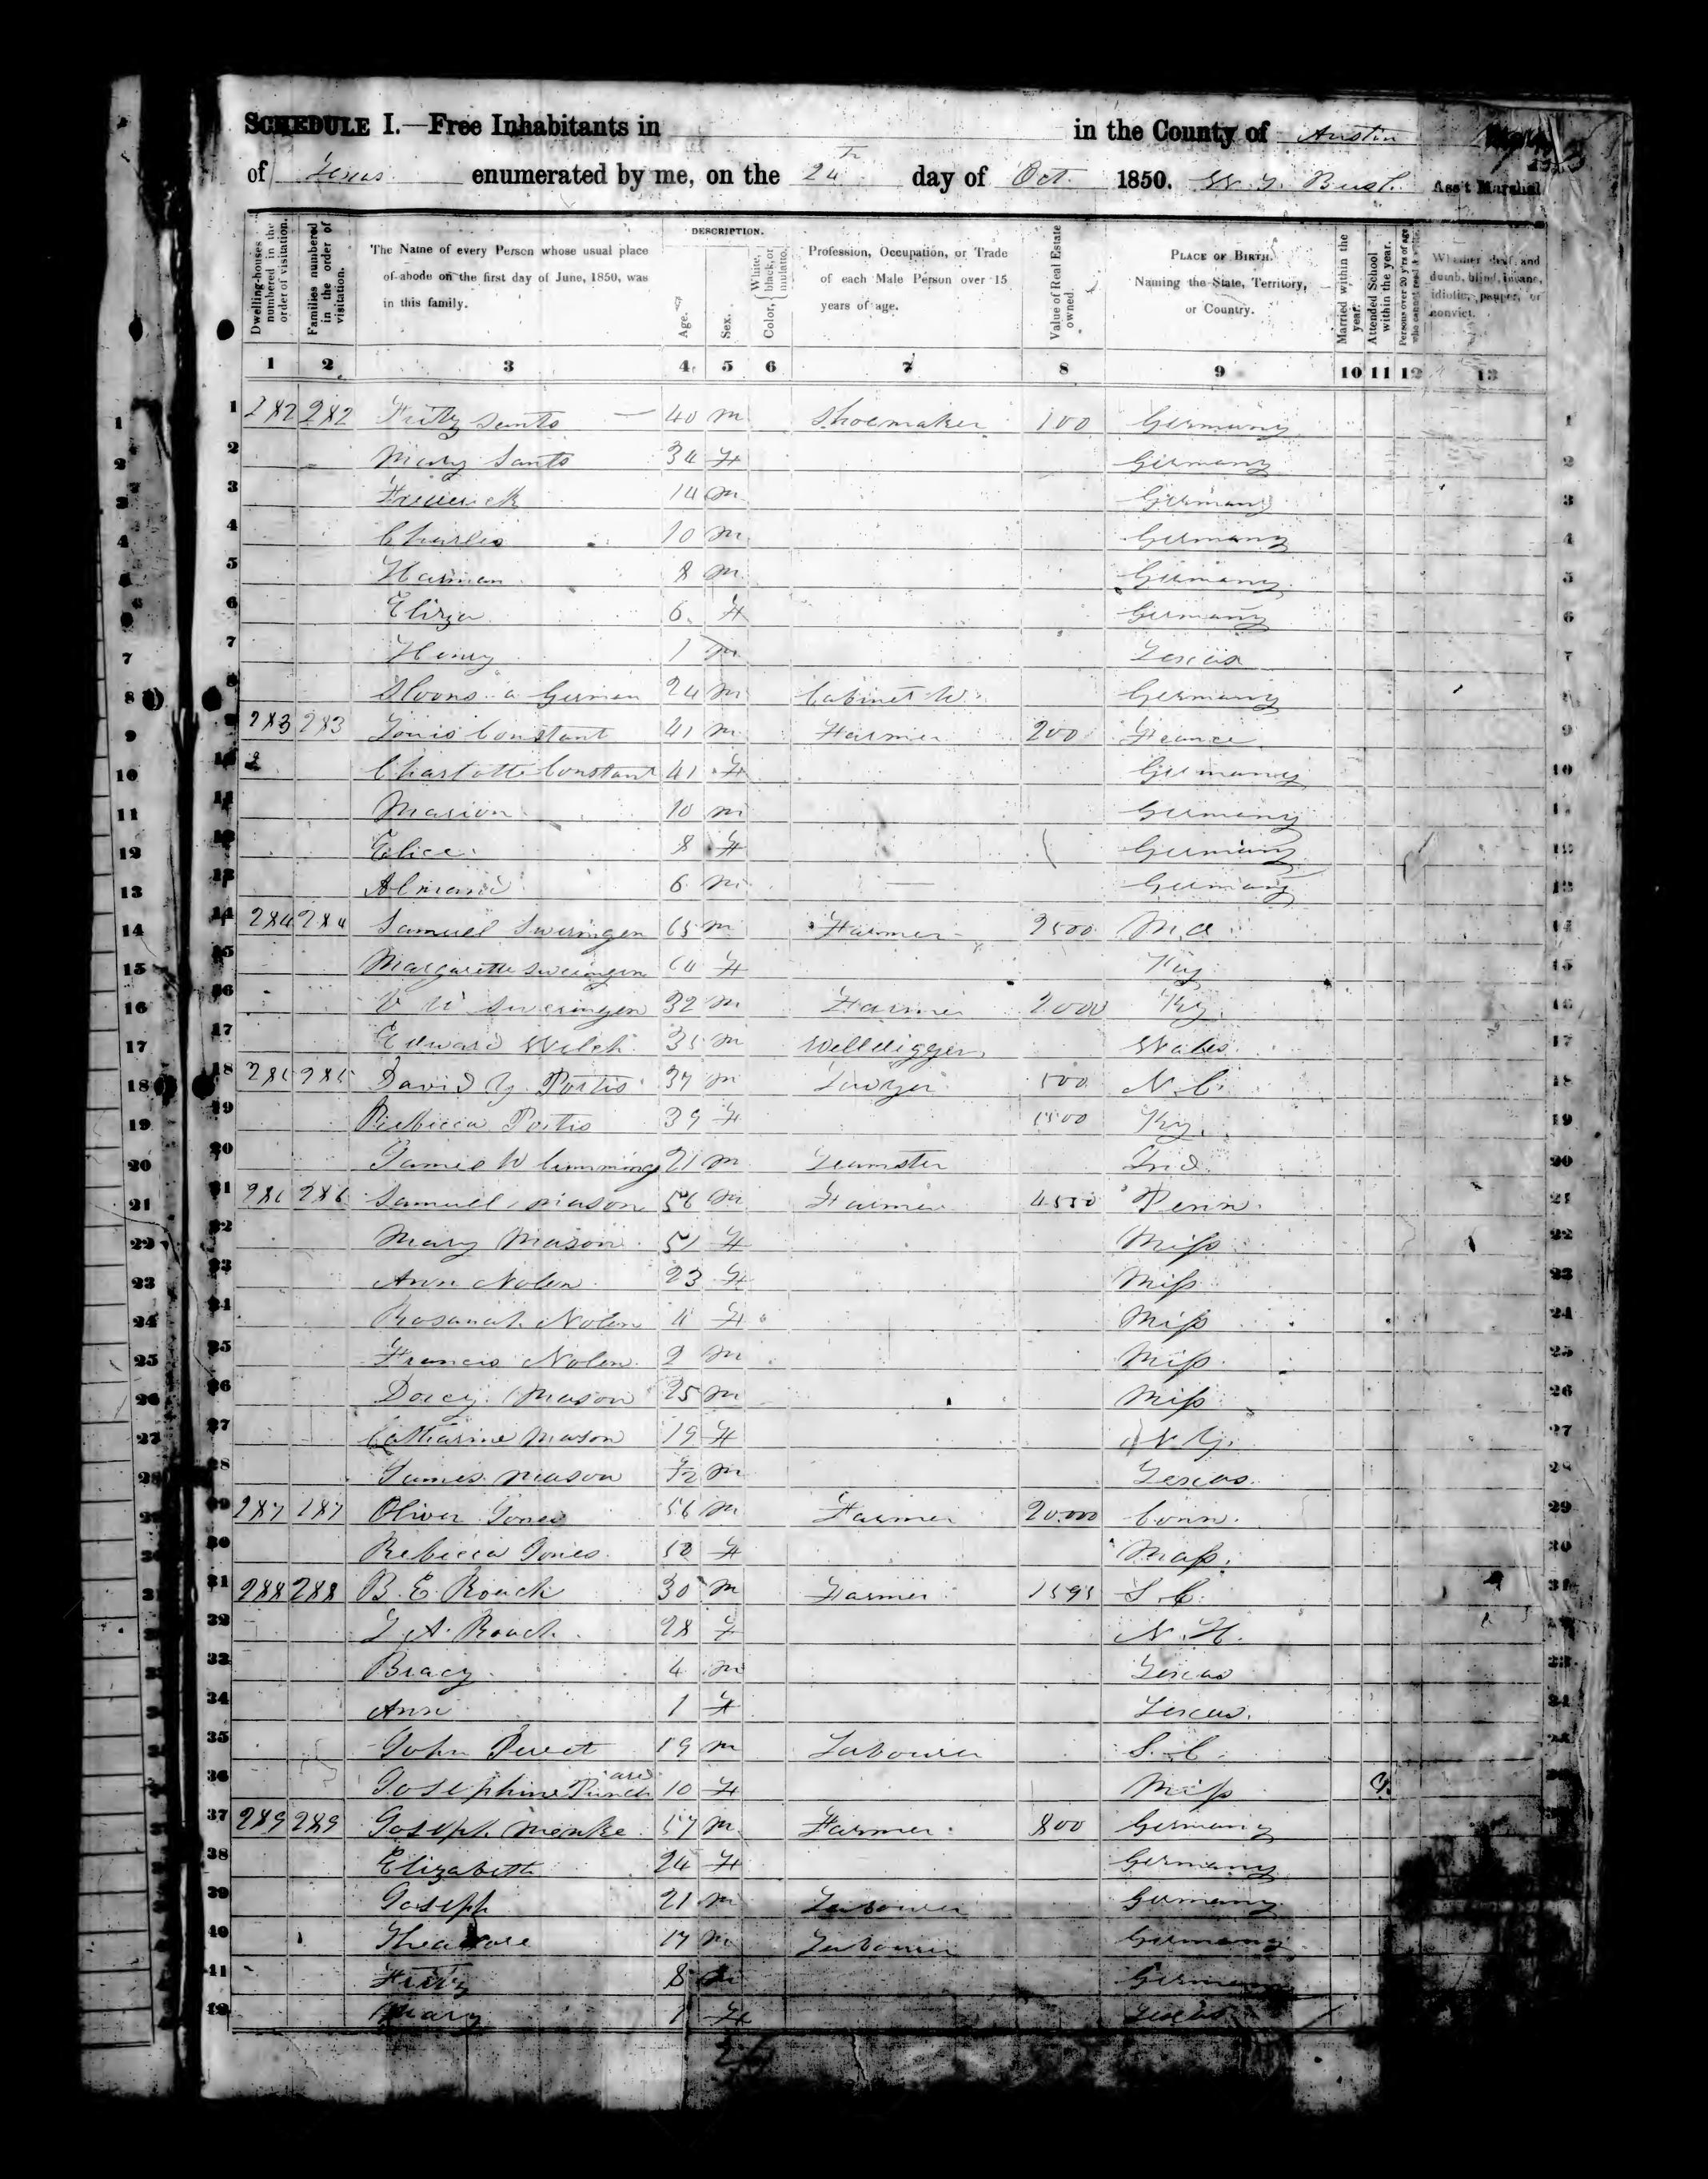 SCHEDULE I.—Free Inhabitants in in the County of Austin
of Texas enumerated by me, on the 24th day of Oct. 1850. Ass't Marshal
Dwelling-houses numbered in the order of visitation.
Families numbered in the order of visitation.
The Name of every Person whose usual place of abode on the first day of June, 1850, was in this family.
DESCRIPTION.
Age.
Sex.
Color, White, black, or mulatto.
Profession, Occupation, or Trade of each Male Person over 15 years of age.
Value of Real Estate owned.
PLACE OF BIRTH. Naming the State, Territory, or Country.
Married within the year.
Attended School within the year.
Persons over 20 y'rs of age who cannot read & write.
Whether deaf and dumb, blind, insane, idiotic, pauper, or convict.
1 2 3 4 5 6 7 8 9 10 11 12 13
1 282 282 Fritz Santo 40 m Shoemaker 100 Germany 1
2 Mary Santo 34 F Germany 2
3 Frederick 14 m Germany 3
4 Charles 10 m Germany 4
5 Harman 8 m Germany 5
6 Eliza 6 F Germany 6
7 Henry 1 m Texas 7
8 a German 24 m Cabinet W. Germany 8
9 283 283 Louis Constant 41 m Farmer 200 France 9
10 Charlotte Constant 41 F Germany 10
11 Marion 10 m Germany 11
12 Elice 8 F Germany 12
13 6 m Germany 13
14 284 284 Samuel Sweringen 65 m Farmer 2500 Md 14
15 Margarette Sweringen F Ky 15
16 Sweringen 32 m Farmer 2000 Ky. 16
17 Edward Welch 35 m Welldigger Wales 17
18 285 285 David Y. Portis 37 m Lawyer 500 N.C. 18
19 Rebecca Portis 39 F 1500 Ky. 19
20 James W Cumming 21 m Teamster Ind 20
21 286 286 Samuel Mason 56 m Farmer Penn. 21
22 Mary Mason 51 F Miss 22
23 Ann Nolen 23 F Miss 23
24 Rosanah Nolen 4 F Miss 24
25 Francis Nolen 2 m Miss. 25
26 Dorcy Mason 25 m Miss 26
27 Catharine Mason 19 F N.Y. 27
28 James Mason m Texas. 28
29 287 287 Oliver Jones 56 m Farmer 20000 Conn. 29
30 Rebecca Jones F Mass. 30
31 288 288 B. E. Roach 30 m Farmer 1595 S.C. 31
32 A. Roach 28 F N.H.
33 Bracy 4 m Texas 33
34 Ann 1 F Texas. 34
35 John 19 m Labourer S.C.
36 Josephine 10 F Miss
37 289 289 Joseph Menke 57 m Farmer 800 Germany
38 Elizabeth 24 F Germany
39 Joseph 21 m Labourer Germany
40 Theadore 17 m Labourer Germany
41 Fritz 8 m Germany
42 Mary 1 F Texas